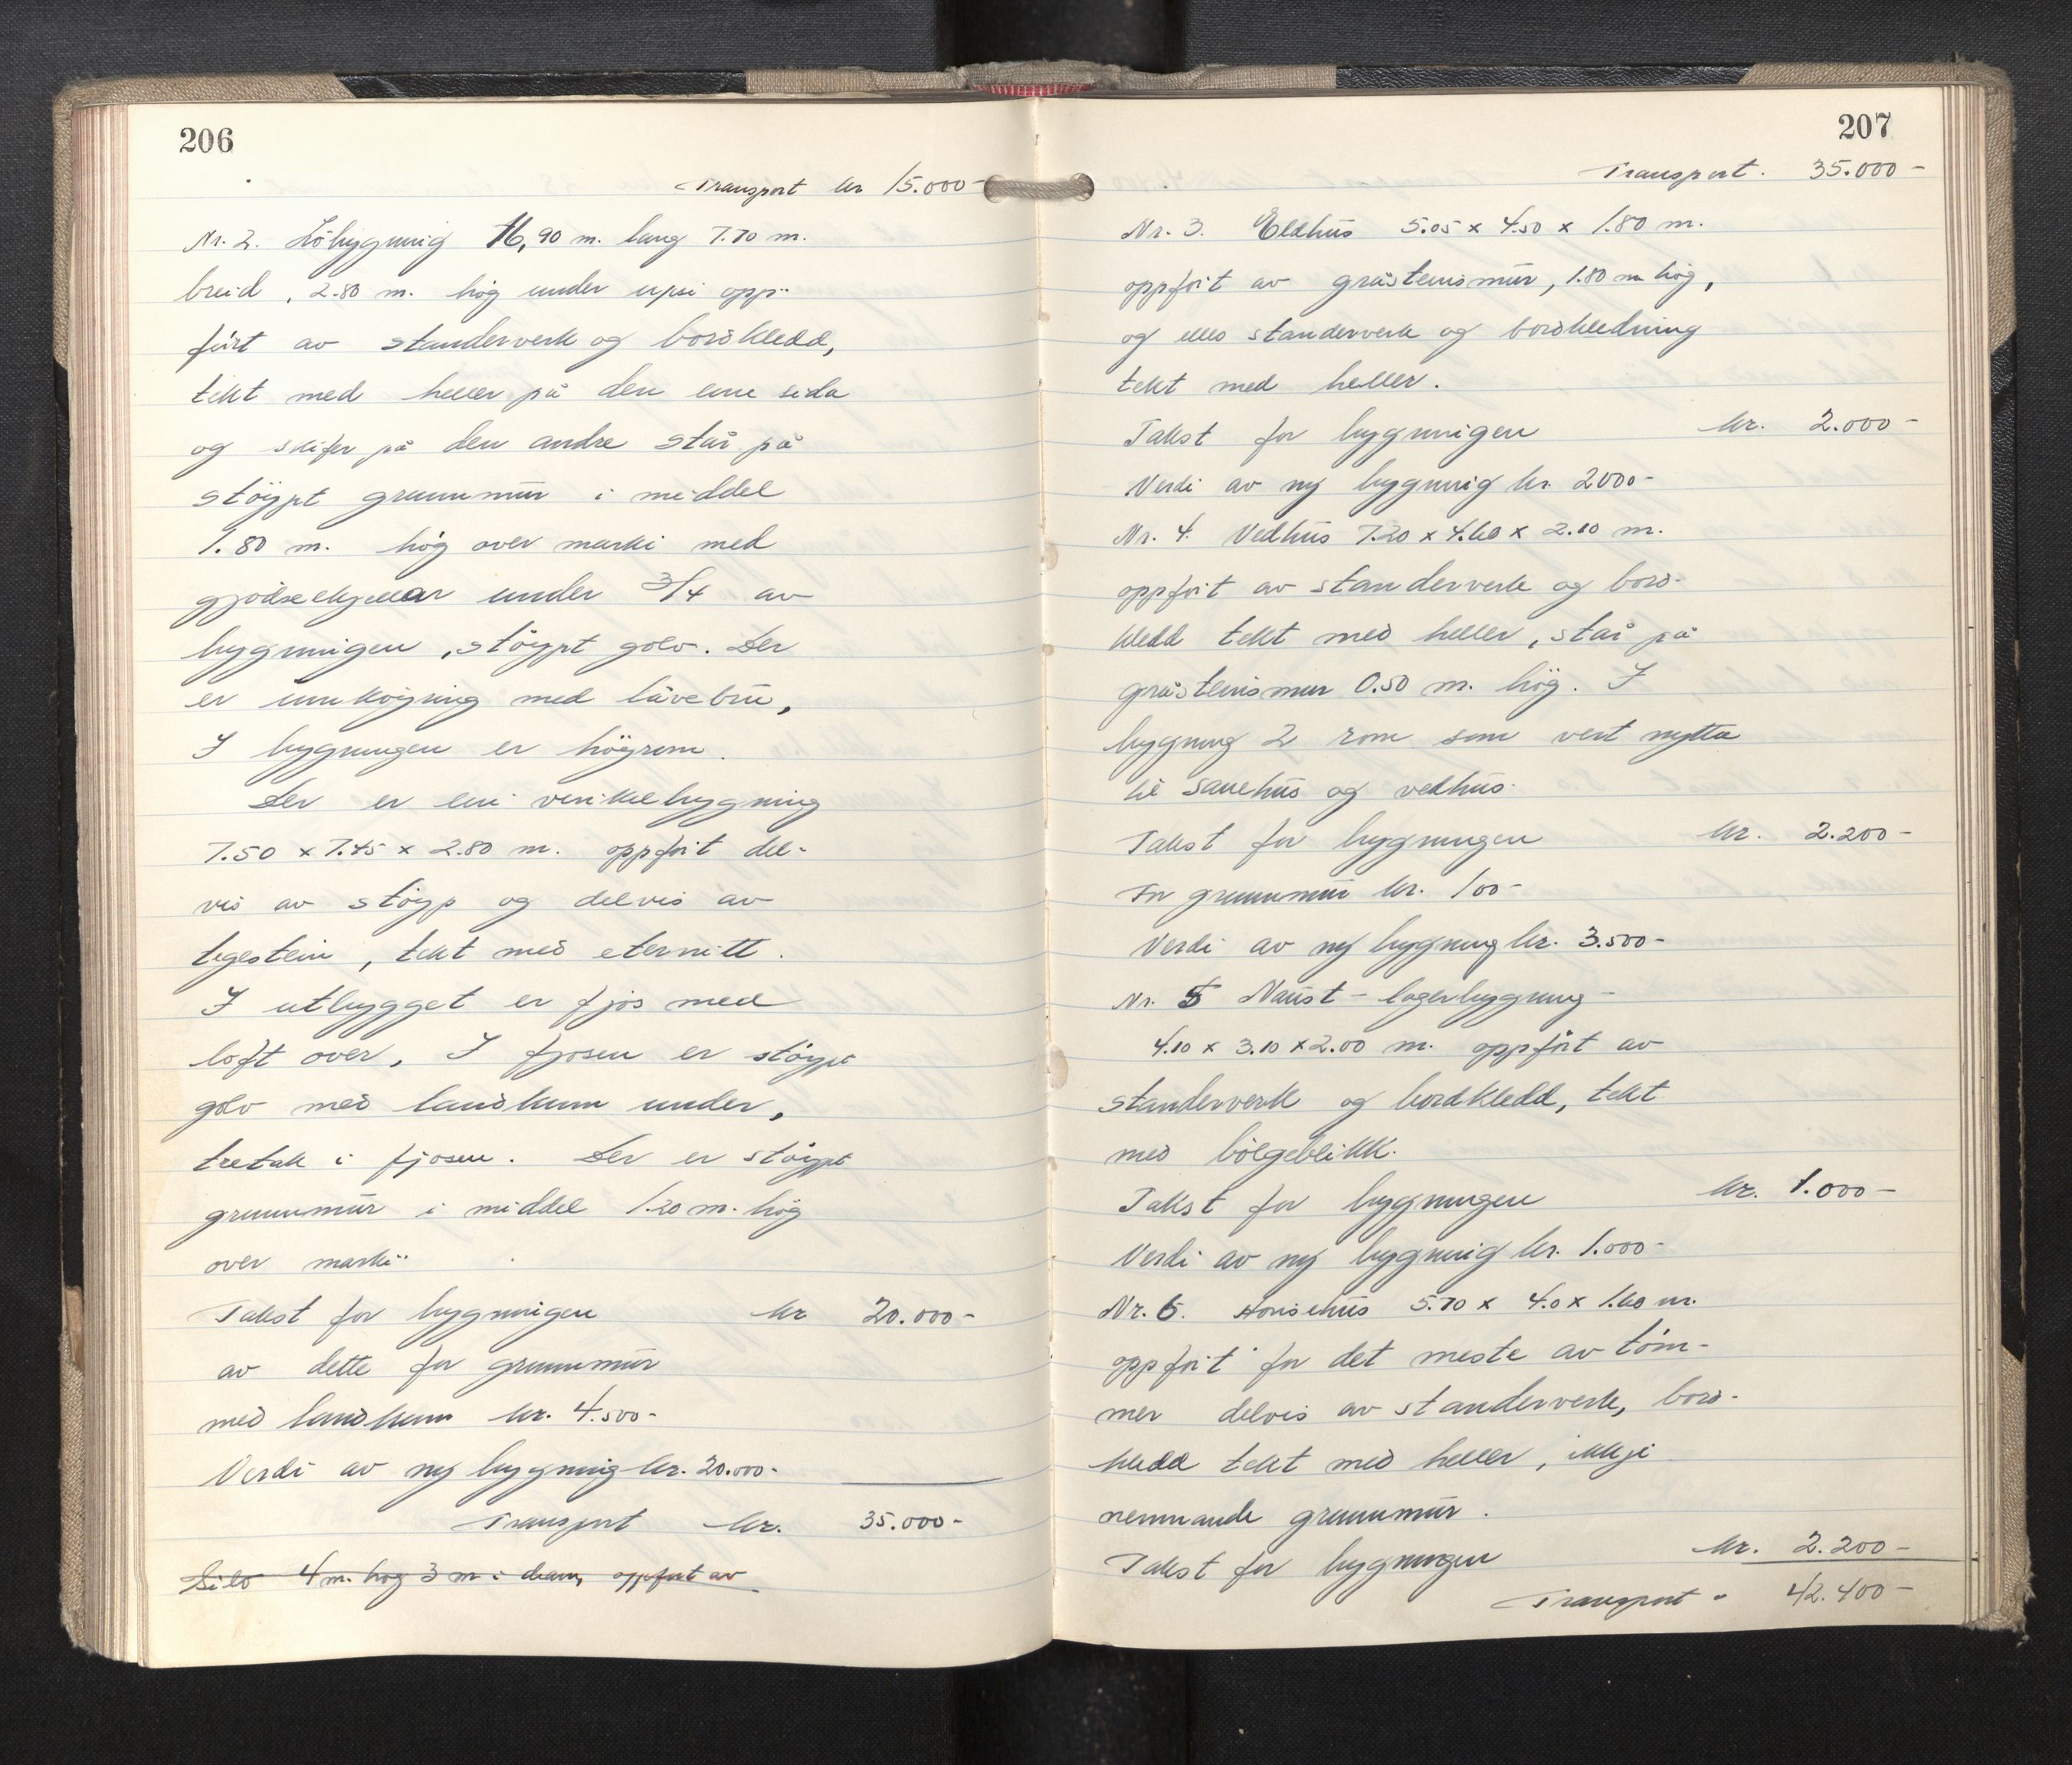 206
Transport kr 15.000-
Nr. 2. Löbygning 16,90 m. lang 7.70 m.
breid, 2.80 m. hög under upsi opp-
fört av standerverk og bordkledd,
tekt med heller på den eine sida
og skifer på den andre står på
stöypt grunnmur i middel
1.80 m. hög over marki med
gjödselkjellar under 3/4 av
bygningen, stöypt golv. Der
er innköyring med låvebru,
I bygningen er höyrom.
Der er ein vinkelbygning
7.50 x 7.45 x 2.80 m. oppfört del-
vis av stöyp og delvis av
tegestein, tekt med eternitt.
I utbygget er fjos med
loft over, I fjosen er stöypt
golv med landkum under,
tretak i fjosen. Der er stöypt
grunnmur i middel 1.20 m. hög
over marki
Takst for bygningen kr 20.000-
av dette for grunnmur
med landkum kr. 4.500-
Verdi av ny bygning kr. 20.000-
Transport kr. 35.000-
Silo 4 m. hög 3 m i diam, oppfört av
207
Transport. 35.000-
Nr. 3. Eldhus 5.05 x 4.50 x 1.80 m.
oppfört av gråsteinsmur, 1.80 m hög,
og elles standerverk og bordkledning
tekt med heller.
Takst for bygningen kr. 2.000-
Verdi av ny bygning kr. 2000-
Nr. 4. Vedhus 7.20 x 4.60 x 2.10 m.
oppfört av standerverk og bord-
kledd tekt med heller, står på
gråsteinsmur 0.50 m. hög. I
bygning 2 rom som vert nytta
til sauehus og vedhus.
Takst for bygningen kr. 2.200-
For grunnmur kr. 100-
Verdi av ny bygning kr. 3.500-
Nr. 5 Naust - lagerbygning -
4.10 x 3.10 x 2.00 m. oppfört av
standerverk og bordkledd, tekt
med bölgeblikk.
Takst for bygningen kr. 1.000-
Verdi av ny bygning kr. 1.000-
Nr. 6. Hönsehus 5.70 x 4.0 x 1.60 m.
oppfört for det meste av töm-
mer delvis av standerverk, bord-
kledd tekt med heller, ikkje
nemnande grunnmur.
Takst for bygningen kr. 2.200-
Transport " 42.400-